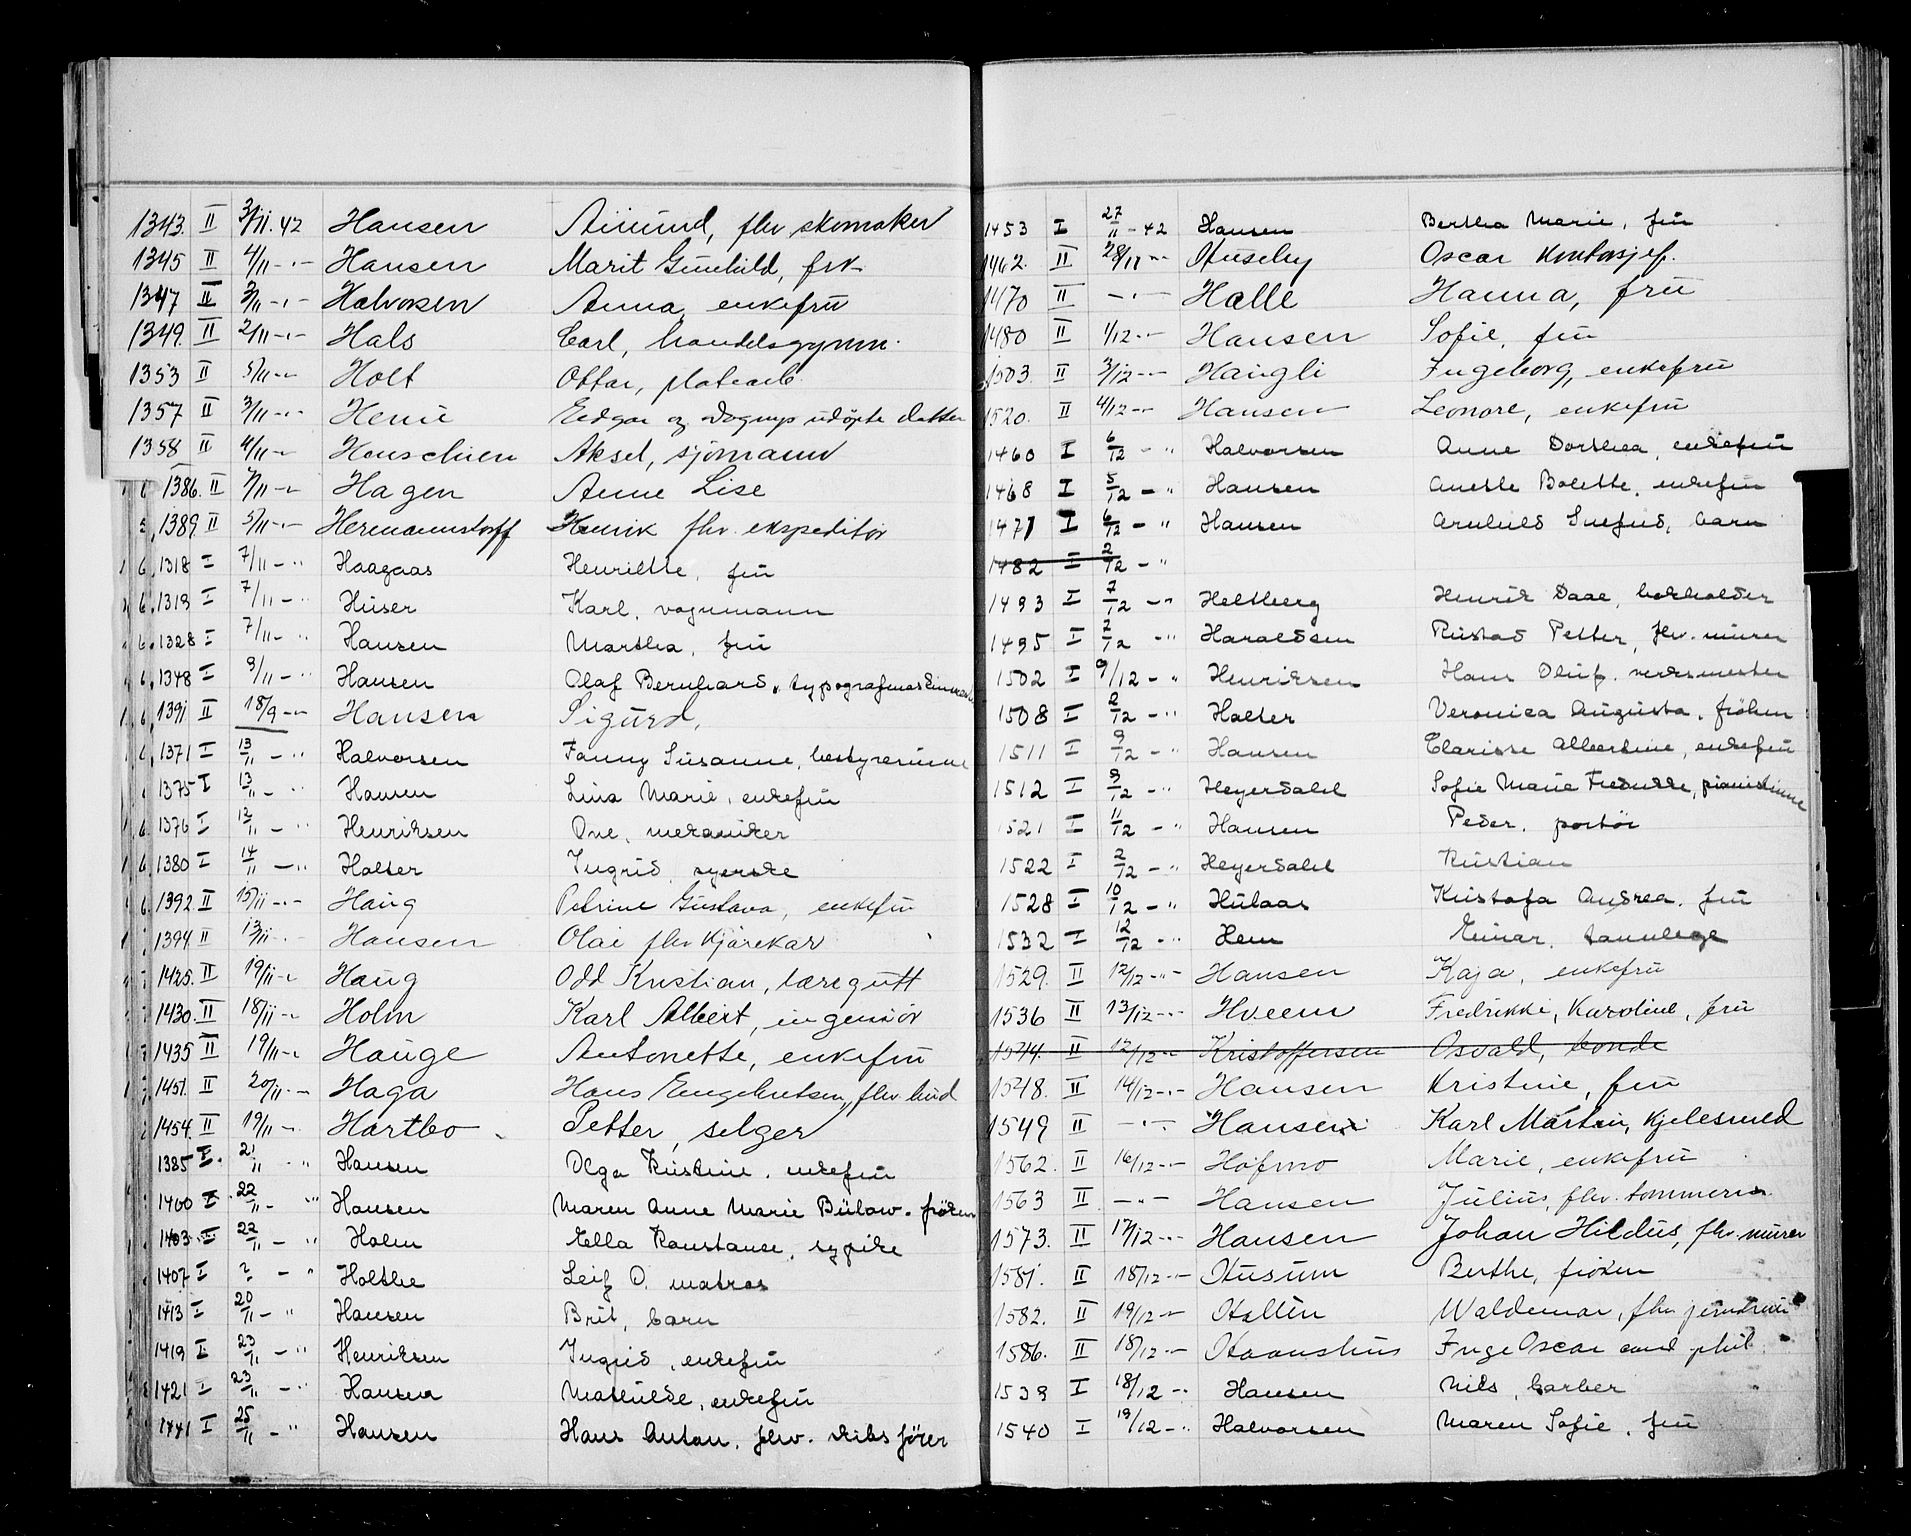 1343. II 3/11. 42 Hansen Amund, flv skomaker
1345 II 4/11 - „ - Hansen Marit Gunhild, frk.
1347 II 3/11 - „ - Halvorsen Anna, enkefru
1349. II 2/11 - „ - Hals Carl, handelsgymn.
1353 II 5/11 - „ - Holt Ottar, platearb.
1357 II 3/11 - „ - Henie Edgar og Dagnys udöpte datter
1358 II 4/11 - „ - Aksel, sjömann
1386. II 7/11 - „ - Hagen Anne Lise
1389. II 5/11 - „ - Hermannstorff Henrik flv. ekspeditör
1318 I 7/11 - „ Haagaas Henriette, fru
1319 I 7/11 - „ Huser Karl, vognmann
1328 I 7/11 - „ Hansen Martha, fru
1348 I 9/11 - „ Hansen Olaf Bernhard, typografmaskinmester
1391 II 18/9 - „ - Hansen Sigurd,
1371 I 13/11 - „ Halvorsen Fanny Susanne, bestyrerinne
1375 I 13/11 - „ Hansen Lina Marie, enkefru
1376 I 12/11 - „ Henriksen Ove, mekaniker
1380 I 14/11 - „ Holter Ingrid, syerske
1392 II 15/11 - „ - Haug Petrine Gustava, enkefru
1394. II 13/11 - „ Hansen Olai flv kjörekar
1425. II 19/11 - „ Haug Odd Kristian, læregutt
1430. II 18/11 - „ Holm Karl Albert, ingeniör
1435 II 19/11 - „ Hauge Antonette, enkefru
1451. II 20/11 - „ - Haga Hans Engebretsen, flv.
1454. II 19/11 - „ Hartbo Petter, selger
1385 I 21/11 - „ Hansen Olga Kristine, enkefru
1400 I 22/11 - „ Hansen Maren Anne Marie Bülow, fröken
1403 I 22/11 - „ Holm Ella Konstance, sypike
1407 I ? - „ Holthe Leif O. matros
1413 I 20/11 - „ Hansen Brit, barn
1419 I 23/11 - „ Henriksen Ingrid, enkefru
1421 I 23/11 - „ Hansen Mathilde, enkefru
1441 I 25/11 - „ Hansen Hans Anton, flv. skibsförer
1453 I 27/11 - 42 Hansen Bertha Marie, fru
1462. II 28/11 - „ - Huseby Oscar kontorsjef.
1470 II - „ - Halle Hanna, fru
1480 II 1/12 - „ - Hansen Sofie, fru
1503. II 3/12 - „ - Haugli Ingeborg, enkefru
1520. II 4/12 - „ - Hansen Leonore, enkefru
1460 I 6/12 - „ Halvorsen Anne Dorthea, enkefru
1468 I 5/12 - „ Hansen Anette Bolette, enkefru
1471 I 6/12 - „ Hansen Arnhild Snefrid, barn
1482 I 2/12 - „
1493 I 7/12 - „ Heltberg Henrik Daae, bokholder
1495 I 7/12 - „ Haraldsen Kristad Petter, flv. murer
1502 I 9/12 - „ Henriksen Hans Oluf, verksmester
1508 I 2/12 - „ Holter Veronica Augusta, fröken
1511 I 9/12 - „ Hansen Clarisse Albertine, enkefru
1512 I 9/12 - „ Heyerdahl Sofie Marie Fredrikke, pianistinne
1521 I 11/12 - „ Hansen Peder, portör
1522 I 2/12 - „ Heyerdahl Kristian
1528 I 10/12 - „ Hulaas Kristofa Andrea, fru
1532 I 12/12 - „ Hem Einar, tannlege
1529. II 12/12 - „ - Hansen Kaja, enkefru
1536 II 13/12 - „ - Hveem Fredrikke, Karoline, fru
1544. II 12/12 - „ Kristoffersen Osvald, bonde
1548. II 14/12 - „ - Hansen Kristine, fru
1549 II - „ - Hansen Karl Martin, kjelesmed
1562. II 16/12 - „ - Hofmo Marie, enkefru
1563 II - „ - Hansen Julius, flv. tømmerm.
1573. II 17/12 - „ - Hansen Johan Hildus, flv. murer
1581. II 18/12 - „ - Husum Berthe, fröken
1582. II 19/12 - „ Waldemar, flv
1586. II 18/12 - „ Haanshus Inge Oscar cand phil.
1539 I 18/12 - „ Hansen Nils, barber
1540 I 19/12 - „ Halvorsen Maren Sofie, fru